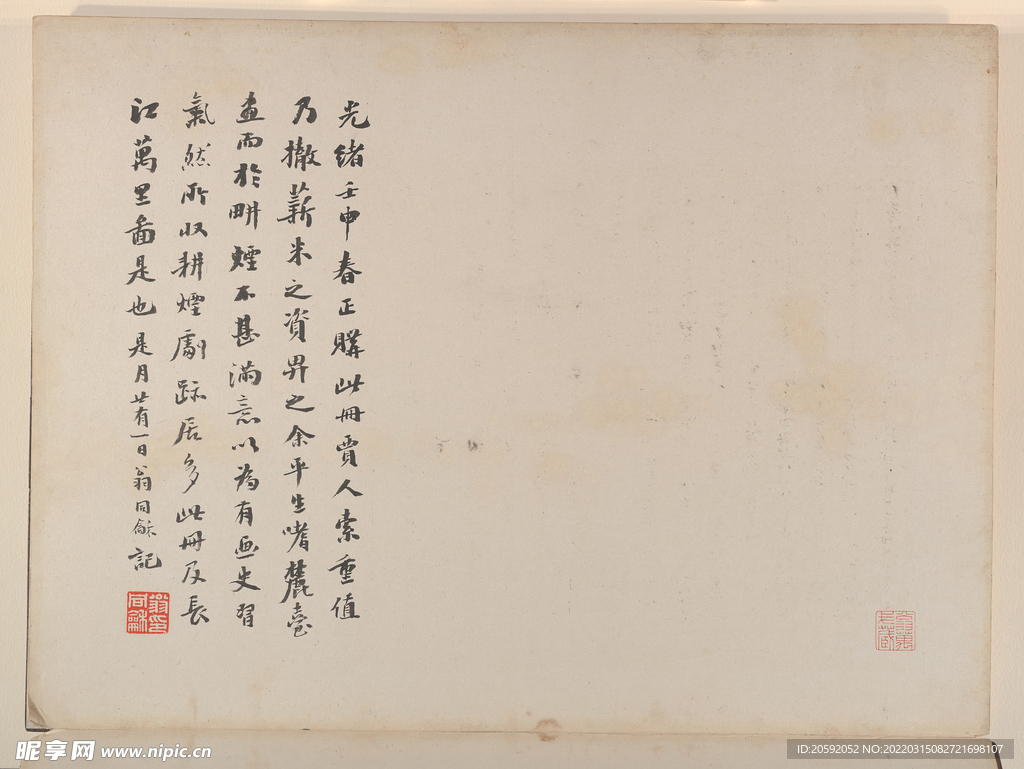 光緒壬申春正購此冊賈人索重值
乃撤薪米之資畀之余平生嗜麓臺
畫而於畊煙不甚滿意以為有画史習
氣然所收耕煙劇跡居多此冊及長
江萬里啚是也是月廿有一日翁同龢記
翁印
同龢
翁萬
戈藏
昵享网 www.nipic.cn
ID:20592052 NO:20220315082721698107